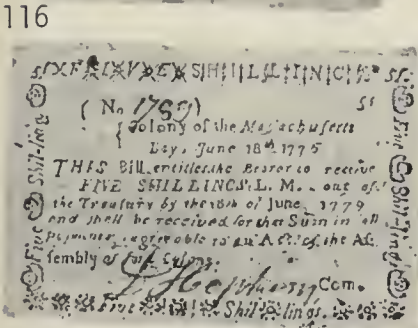 116
F I V E S H I L L I N G S
( No 1769 )
Colony of the Massachusetts
Bay, June 18th 1776
THIS Bill entitles the Bearer to receive
FIVE SHILLINGS L. M. out of
the Treasury by the 18th of June, 1779
and shall be received for that Sum in all
Payments, agreeable to an Act of the As
sembly of said Colony.
Com.
Five Shillings.
Five Shillings
Five Shillings